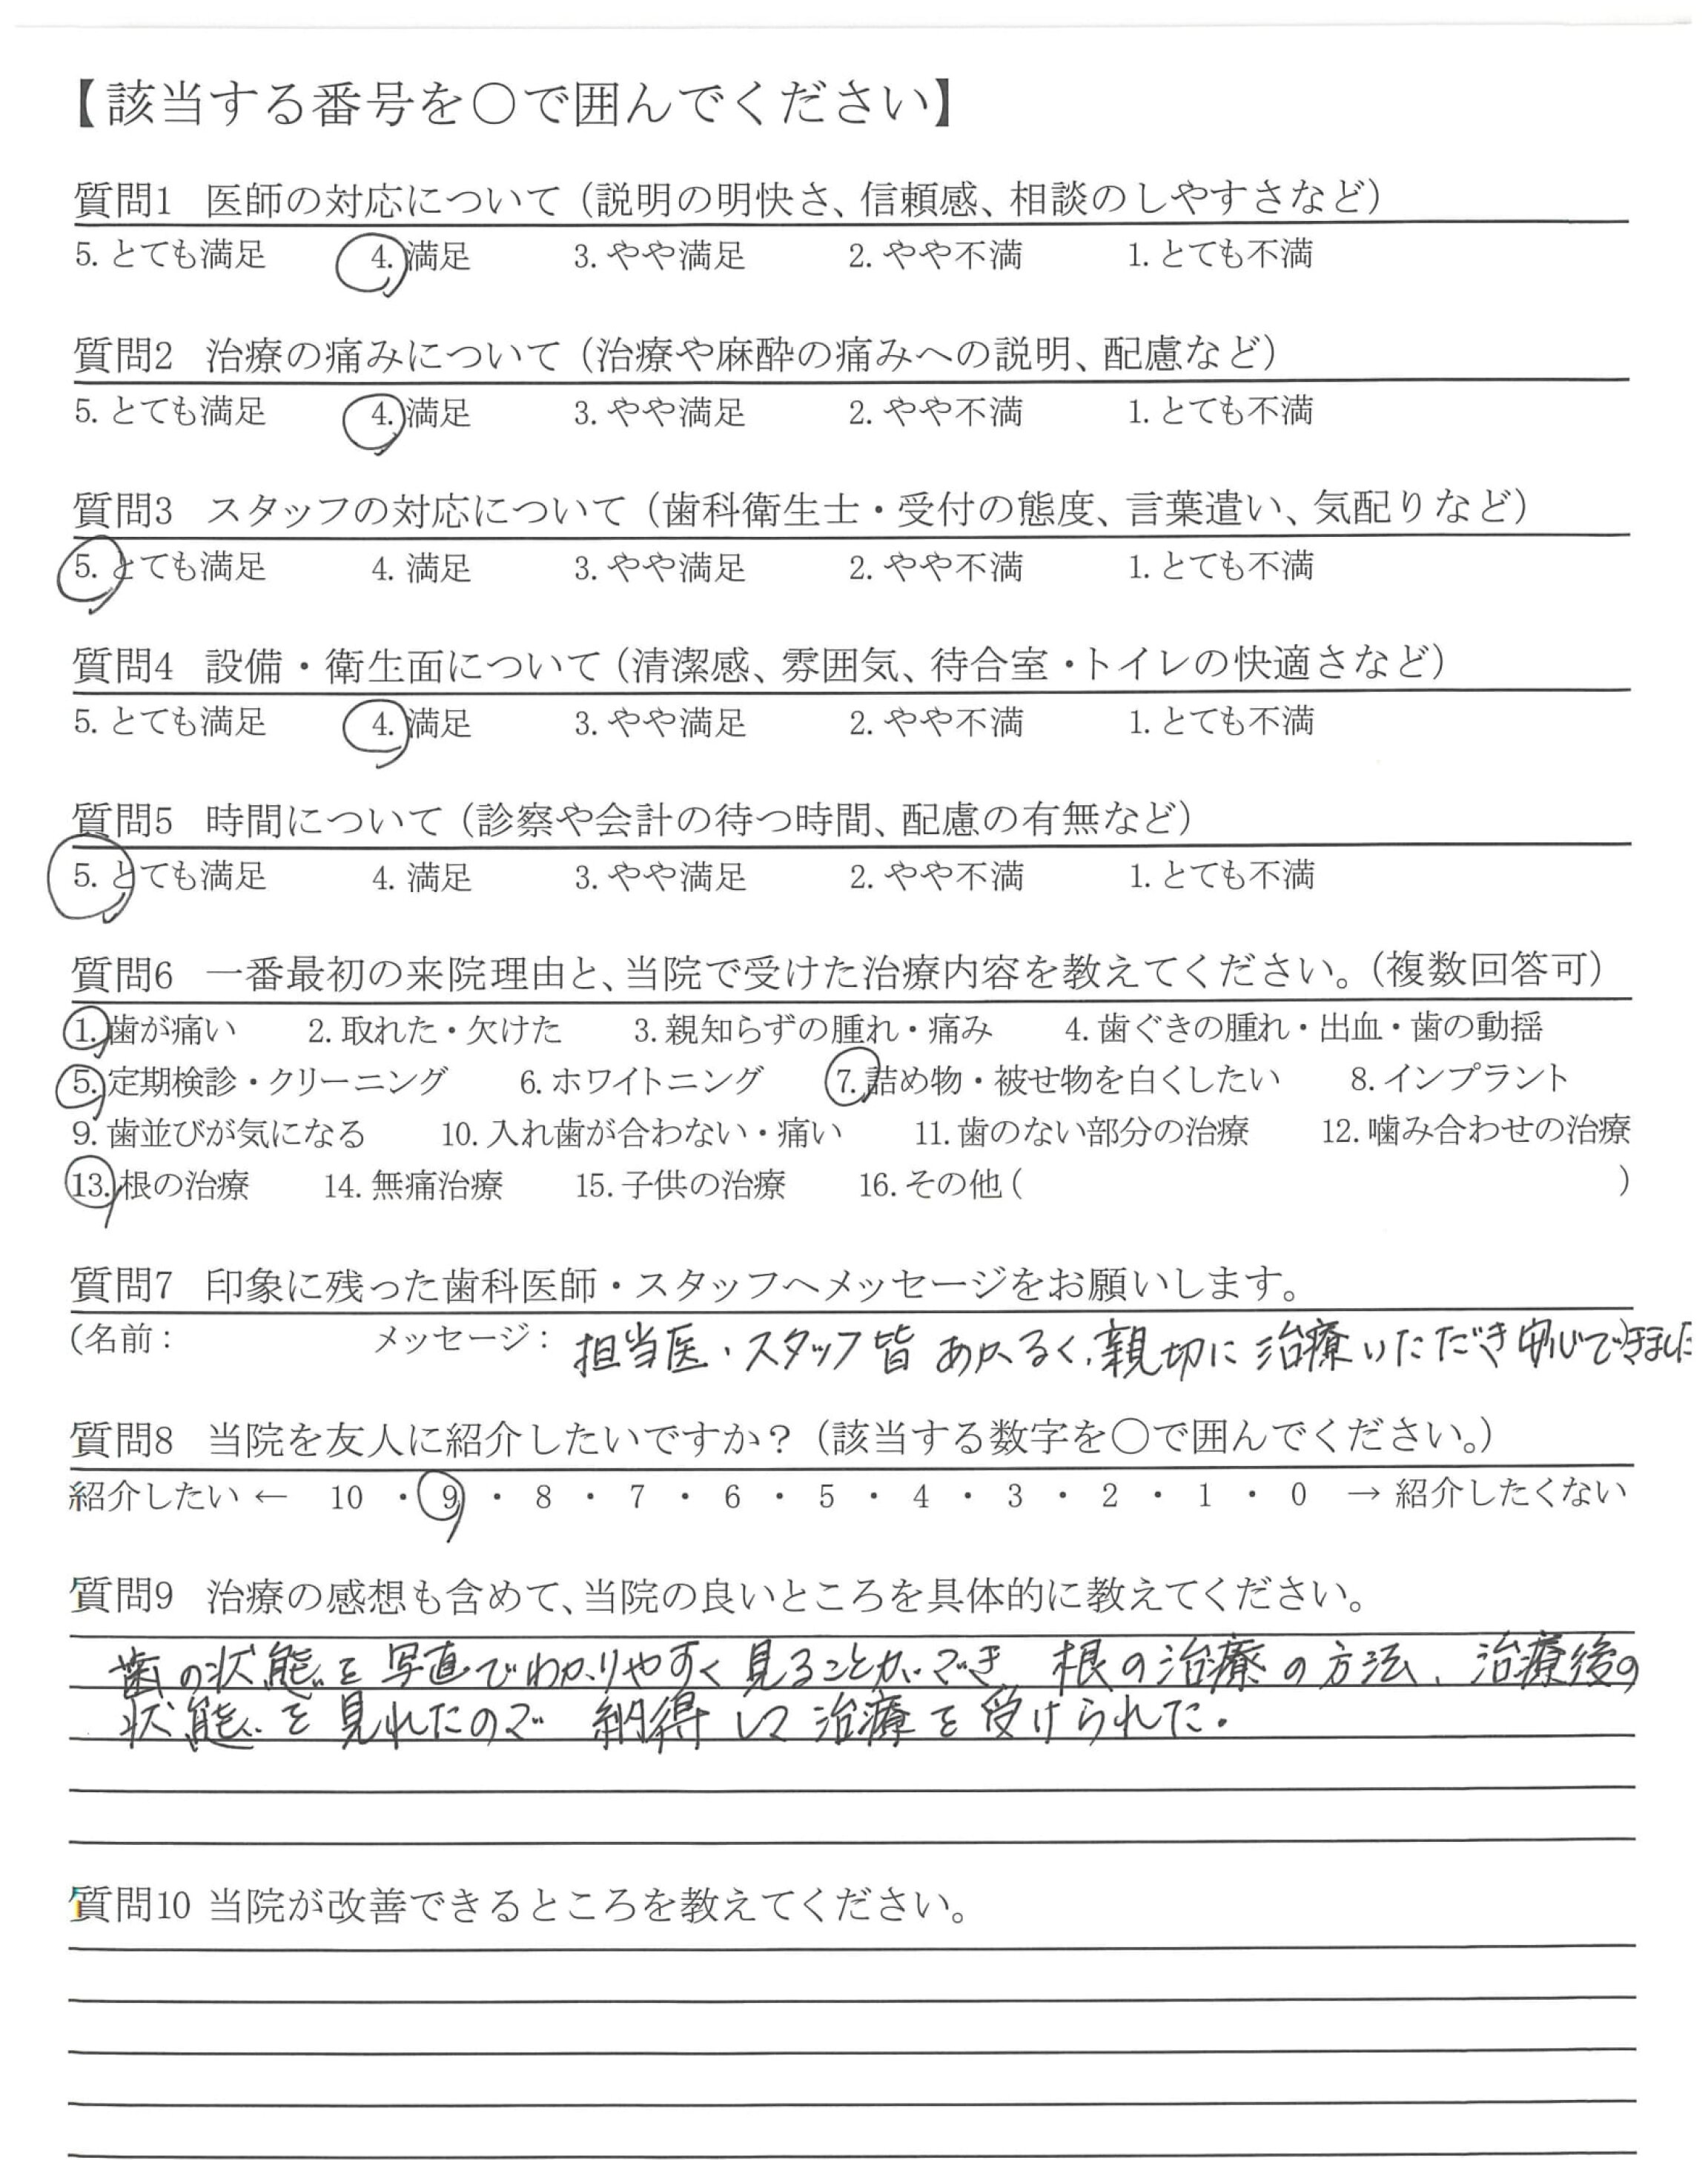 【該当する番号を○で囲んでください】
質問1 医師の対応について（説明の明快さ、信頼感、相談のしやすさなど）
5. とても満足 4. 満足 3. やや満足 2. やや不満 1. とても不満
質問2 治療の痛みについて（治療や麻酔の痛みへの説明、配慮など）
5. とても満足 4. 満足 3. やや満足 2. やや不満 1. とても不満
質問3 スタッフの対応について（歯科衛生士・受付の態度、言葉遣い、気配りなど）
5. とても満足 4. 満足 3. やや満足 2. やや不満 1. とても不満
質問4 設備・衛生面について（清潔感、雰囲気、待合室・トイレの快適さなど）
5. とても満足 4. 満足 3. やや満足 2. やや不満 1. とても不満
質問5 時間について（診察や会計の待つ時間、配慮の有無など）
5. とても満足 4. 満足 3. やや満足 2. やや不満 1. とても不満
質問6 一番最初の来院理由と、当院で受けた治療内容を教えてください。（複数回答可）
1. 歯が痛い 2. 取れた・欠けた 3. 親知らずの腫れ・痛み 4. 歯ぐきの腫れ・出血・歯の動揺
5. 定期検診・クリーニング 6. ホワイトニング 7. 詰め物・被せ物を白くしたい 8. インプラント
9. 歯並びが気になる 10. 入れ歯が合わない・痛い 11. 歯のない部分の治療 12. 噛み合わせの治療
13. 根の治療 14. 無痛治療 15. 子供の治療 16. その他（ ）
質問7 印象に残った歯科医師・スタッフへメッセージをお願いします。
（名前： メッセージ： 担当医・スタッフ皆 あかるく、親切に 治療いただき 安心できました
質問8 当院を友人に紹介したいですか？（該当する数字を○で囲んでください。）
紹介したい ← 10 ・ 9 ・ 8 ・ 7 ・ 6 ・ 5 ・ 4 ・ 3 ・ 2 ・ 1 ・ 0 → 紹介したくない
質問9 治療の感想も含めて、当院の良いところを具体的に教えてください。
歯の状態を写真でわかりやすく見ることができ 根の治療の方法、治療後の
状態を見れたので 納得して治療を受けられた。
質問10 当院が改善できるところを教えてください。